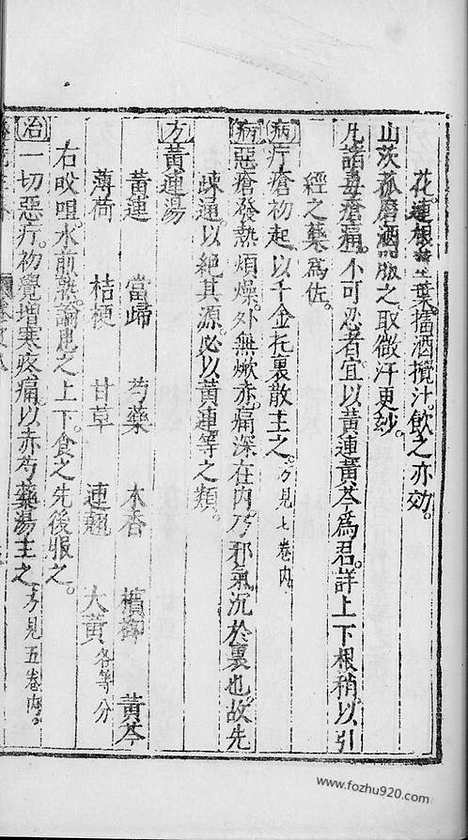 花連根葉擂酒攪汁飲之亦効。
山茨菰磨酒服之取微汗更玅。
凡諸毒瘡痛不可忍者宜以黃連黃芩為君詳上下根稍以引
經之藥為佐。
病疔瘡初起以千金托裏散主之。方見七卷內
病惡瘡發熱煩燥外無焮赤痛深在內乃邪氣沉於裏也故先
疎通以絕其源必以黃連等之類。
方黃連湯
黃連 當歸 芍藥 木香 檳榔 黃芩
薄荷 桔梗 甘草 連翹 大黃各等分
右㕮咀水煎熱論患之上下食之先後服之。
治一切惡疔初覺增寒疼痛以赤芍藥湯主之方見五卷內。
www.fozhu920.com